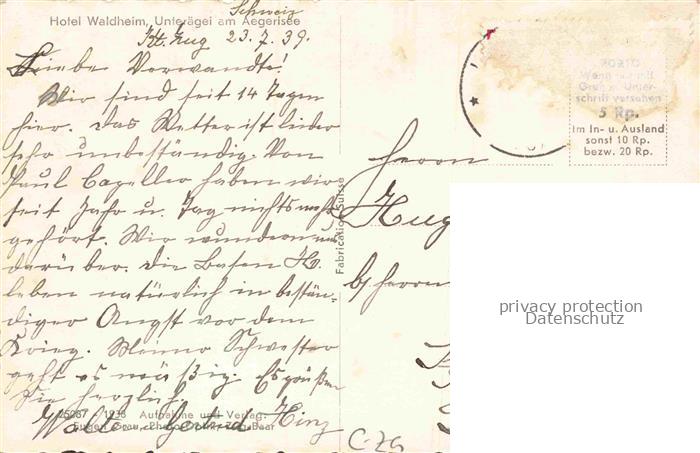 Hotel Waldheim, Unterägei am Aegerisee
Schweiz
Kt. Zug 23.7.39.
Liebe Verwandte!
Wir sind seit 14 Tagen
hier. Das Wetter ist leider
sehr unbeständig. Von
Paul Capeller haben wir
seit Jahr u. Tag nichts mehr
gehört. Wir wundern uns
darüber. Die Basen
leben natürlich in bestän-
diger Angst vor dem
Krieg. Meiner Schwester
geht es mässig. Es grüßen
Sie herzlich
Hinz
25087 1938 Aufnahme und Verlag:
Eugen Grau, Baar
Fabrication Suisse
PORTO
Wenn nur mit
Gruß u. Unter-
schrift versehen
5 Rp.
Im In- u. Ausland
sonst 10 Rp.
bezw. 20 Rp.
Herrn
Hug
b/ Herrn
privacy protection
Datenschutz